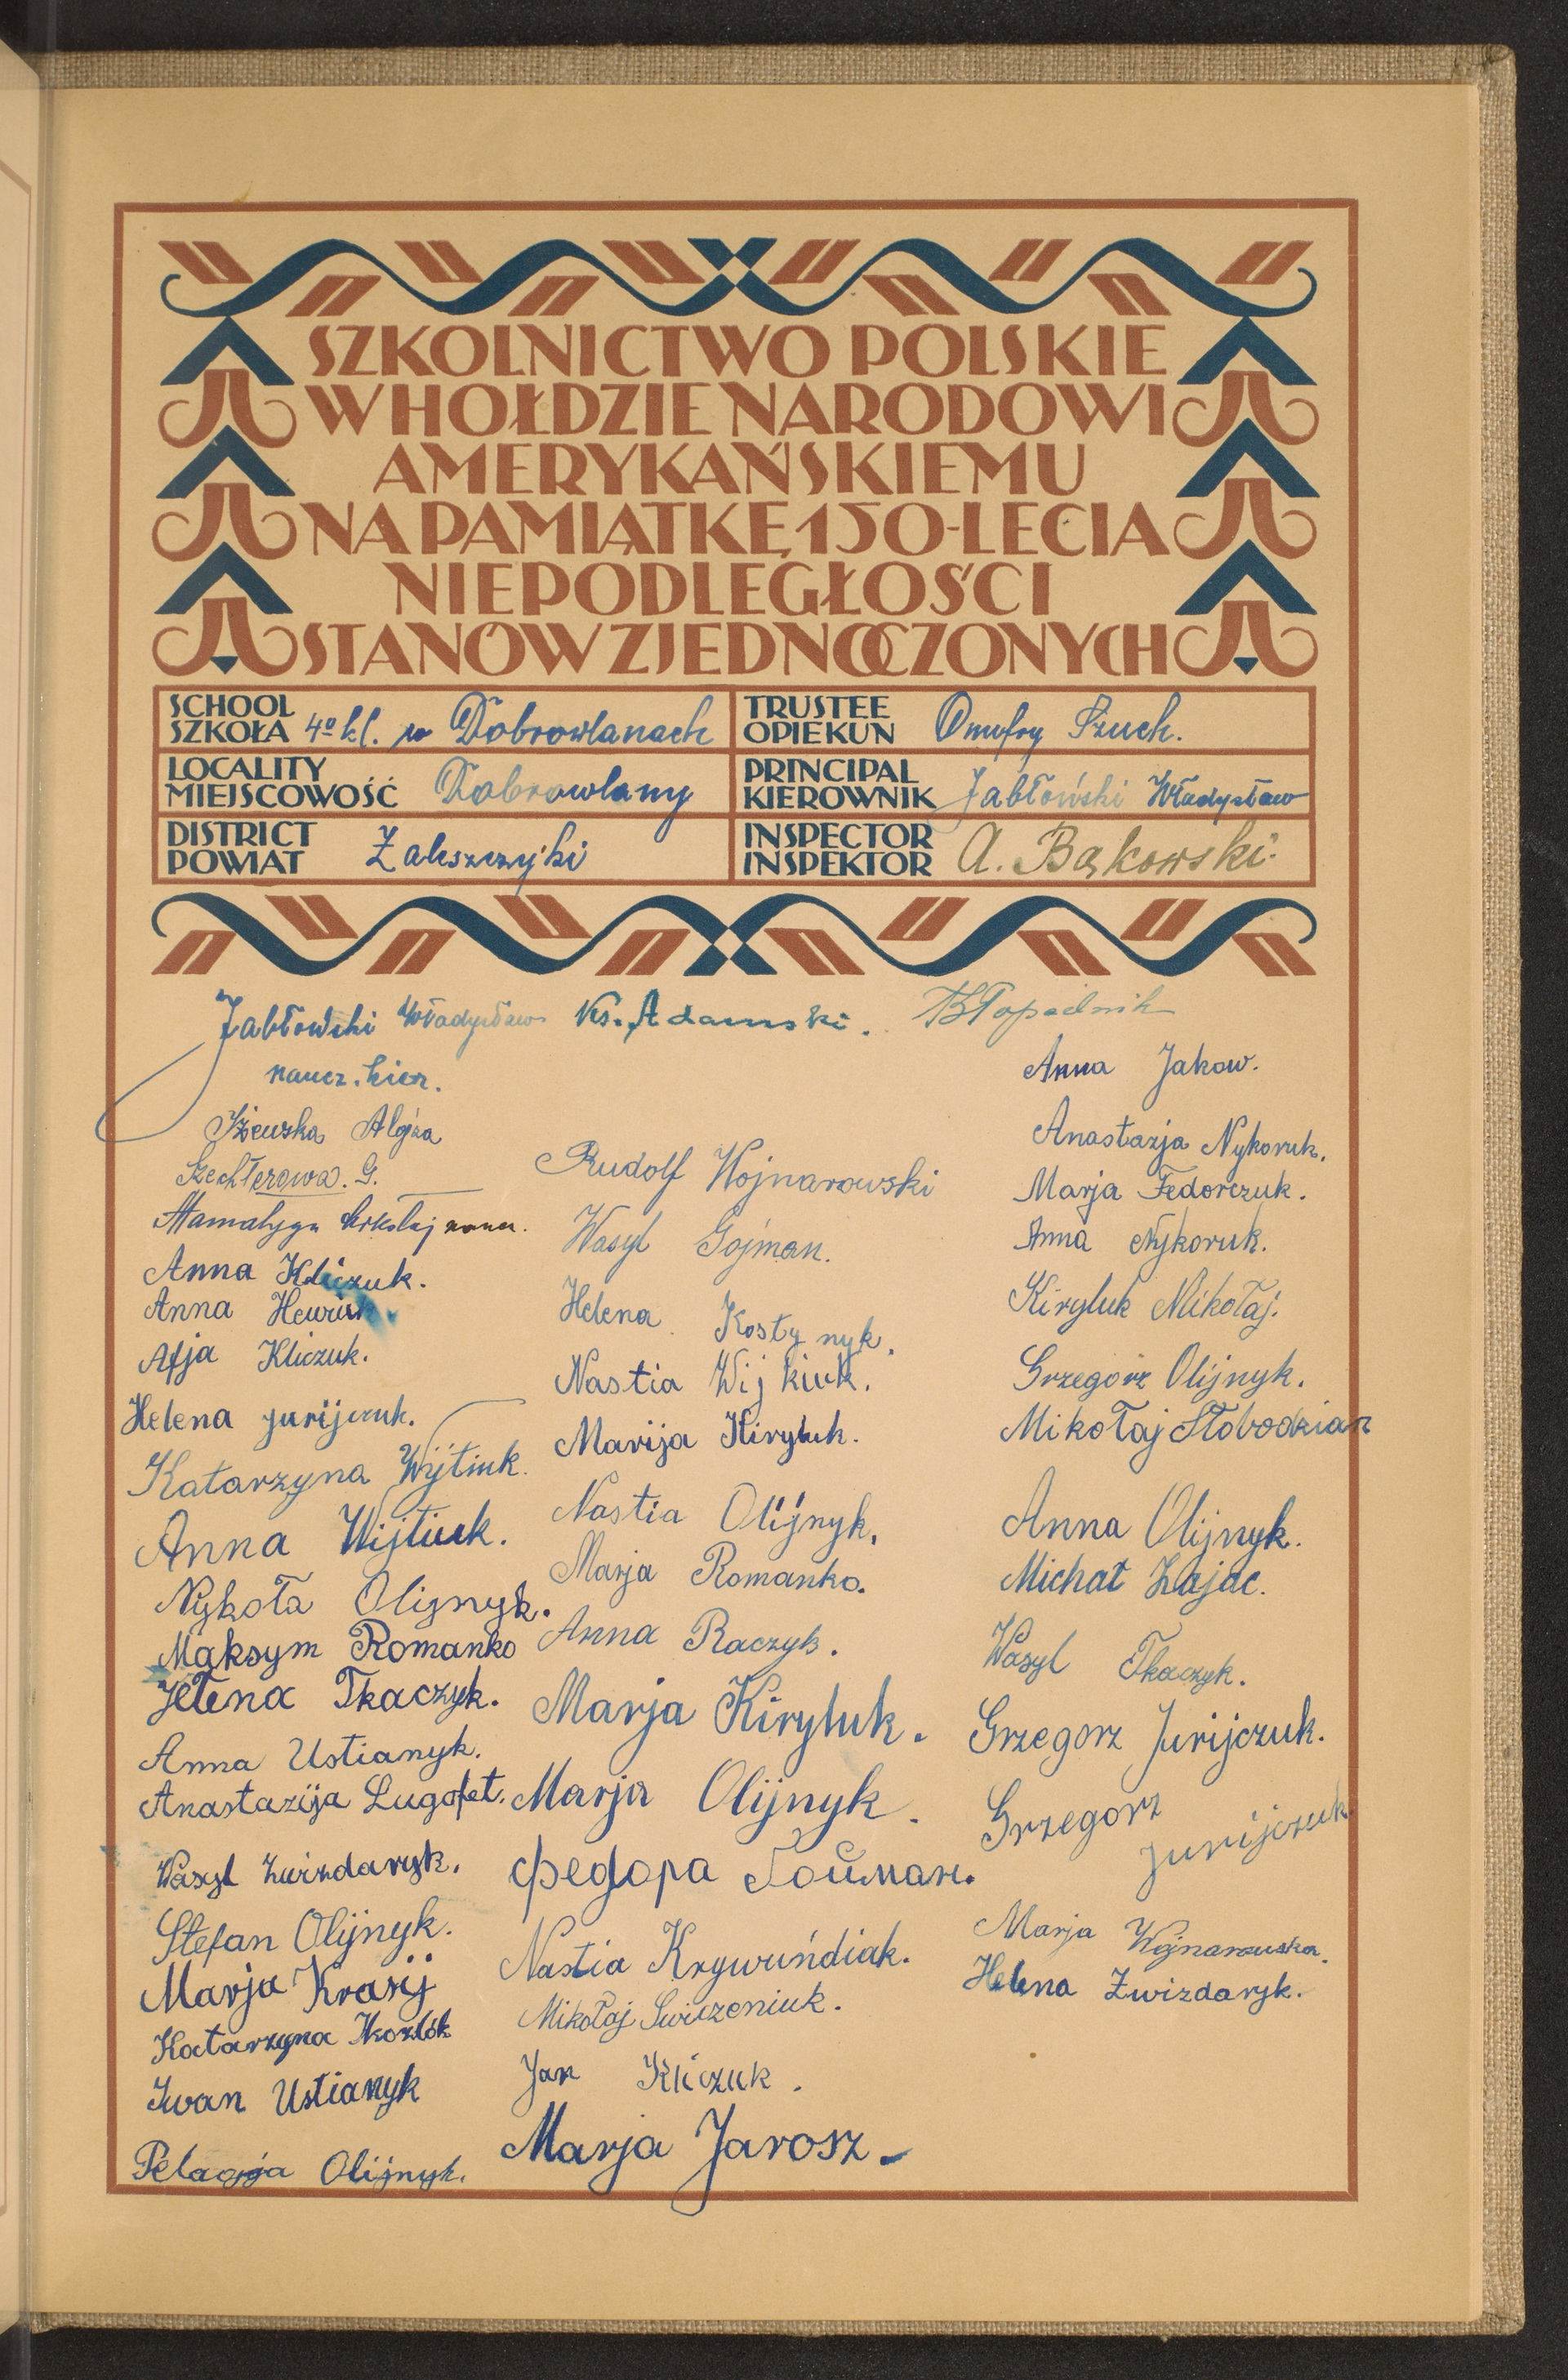 SZKOLNICTWO POLSKIE
W HOŁDZIE NARODOWI
AMERYKAŃSKIEMU
NA PAMIĄTKĘ 150-LECIA
NIEPODLEGŁOŚCI
STANÓW ZJEDNOCZONYCH
SCHOOL
SZKOŁA 4o kl. w Dobrowlanach
TRUSTEE
OPIEKUN Onufry Szuch.
LOCALITY
MIEJSCOWOŚĆ Dobrowlany
PRINCIPAL
KIEROWNIK Jabłoński Władysław
DISTRICT
POWIAT Zaleszczyki
INSPECTOR
INSPEKTOR A. Bąkowski.
Jabłoński Władysław
naucz. kier.
Szechterowa. G.
Mamalyga
Anna Kliczuk.
Anna
Kliczuk.
Helena Jurijczuk.
Katarzyna Wijtiuk.
Anna Wijtiuk.
Nykoła Olijnyk.
Maksym Romanko
Jełena Tkaczyk.
Anna Ustianyk.
Anastazija Lugofet.
Wasyl Zwizdaryk.
Stefan Olijnyk.
Marja Krasij
Katarzyna Kozlik
Iwan Ustianyk
Pelagja Olijnyk.
Ks. Adamski.
Rudolf Wojnarowski
Wasyl Gojman.
Helena Kostynyk.
Nastia Wijtiuk.
Marija Kiryluk.
Nastia Olijnyk.
Marja Romanko.
Anna Raczyk.
Marja Kiryluk.
Marja Olijnyk.
Федора Гойман.
Nastia Krywuńdiak.
Mikołaj Swiczeniuk.
Jan Kliczuk.
Marja Jarosz.
Anna Jakow.
Anastazja Nykoruk.
Marja Fedorczuk.
Anna Nykoruk.
Kiryluk Mikołaj.
Grzegorz Olijnyk.
Mikołaj Słobodzian
Anna Olijnyk.
Michał Zajac.
Wasyl Tkaczyk.
Grzegorz Jurijczuk.
Grzegorz
Jurijczuk
Marja Wojnarowska.
Helena Zwizdaryk.